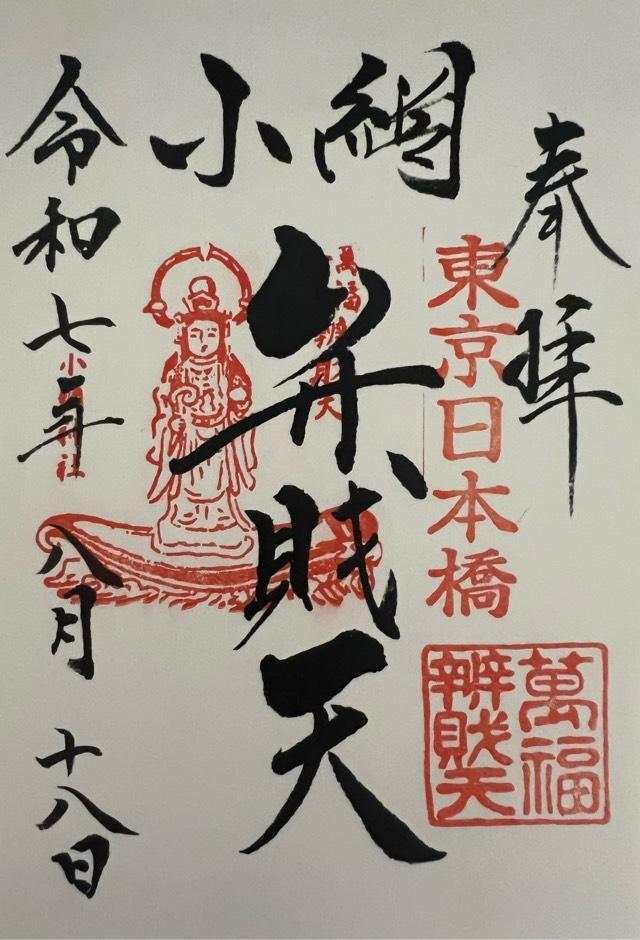 奉拝
東京日本橋
萬福
辨財天
小網
弁財天
萬福辨財天
令和七年八月十八日
小網神社